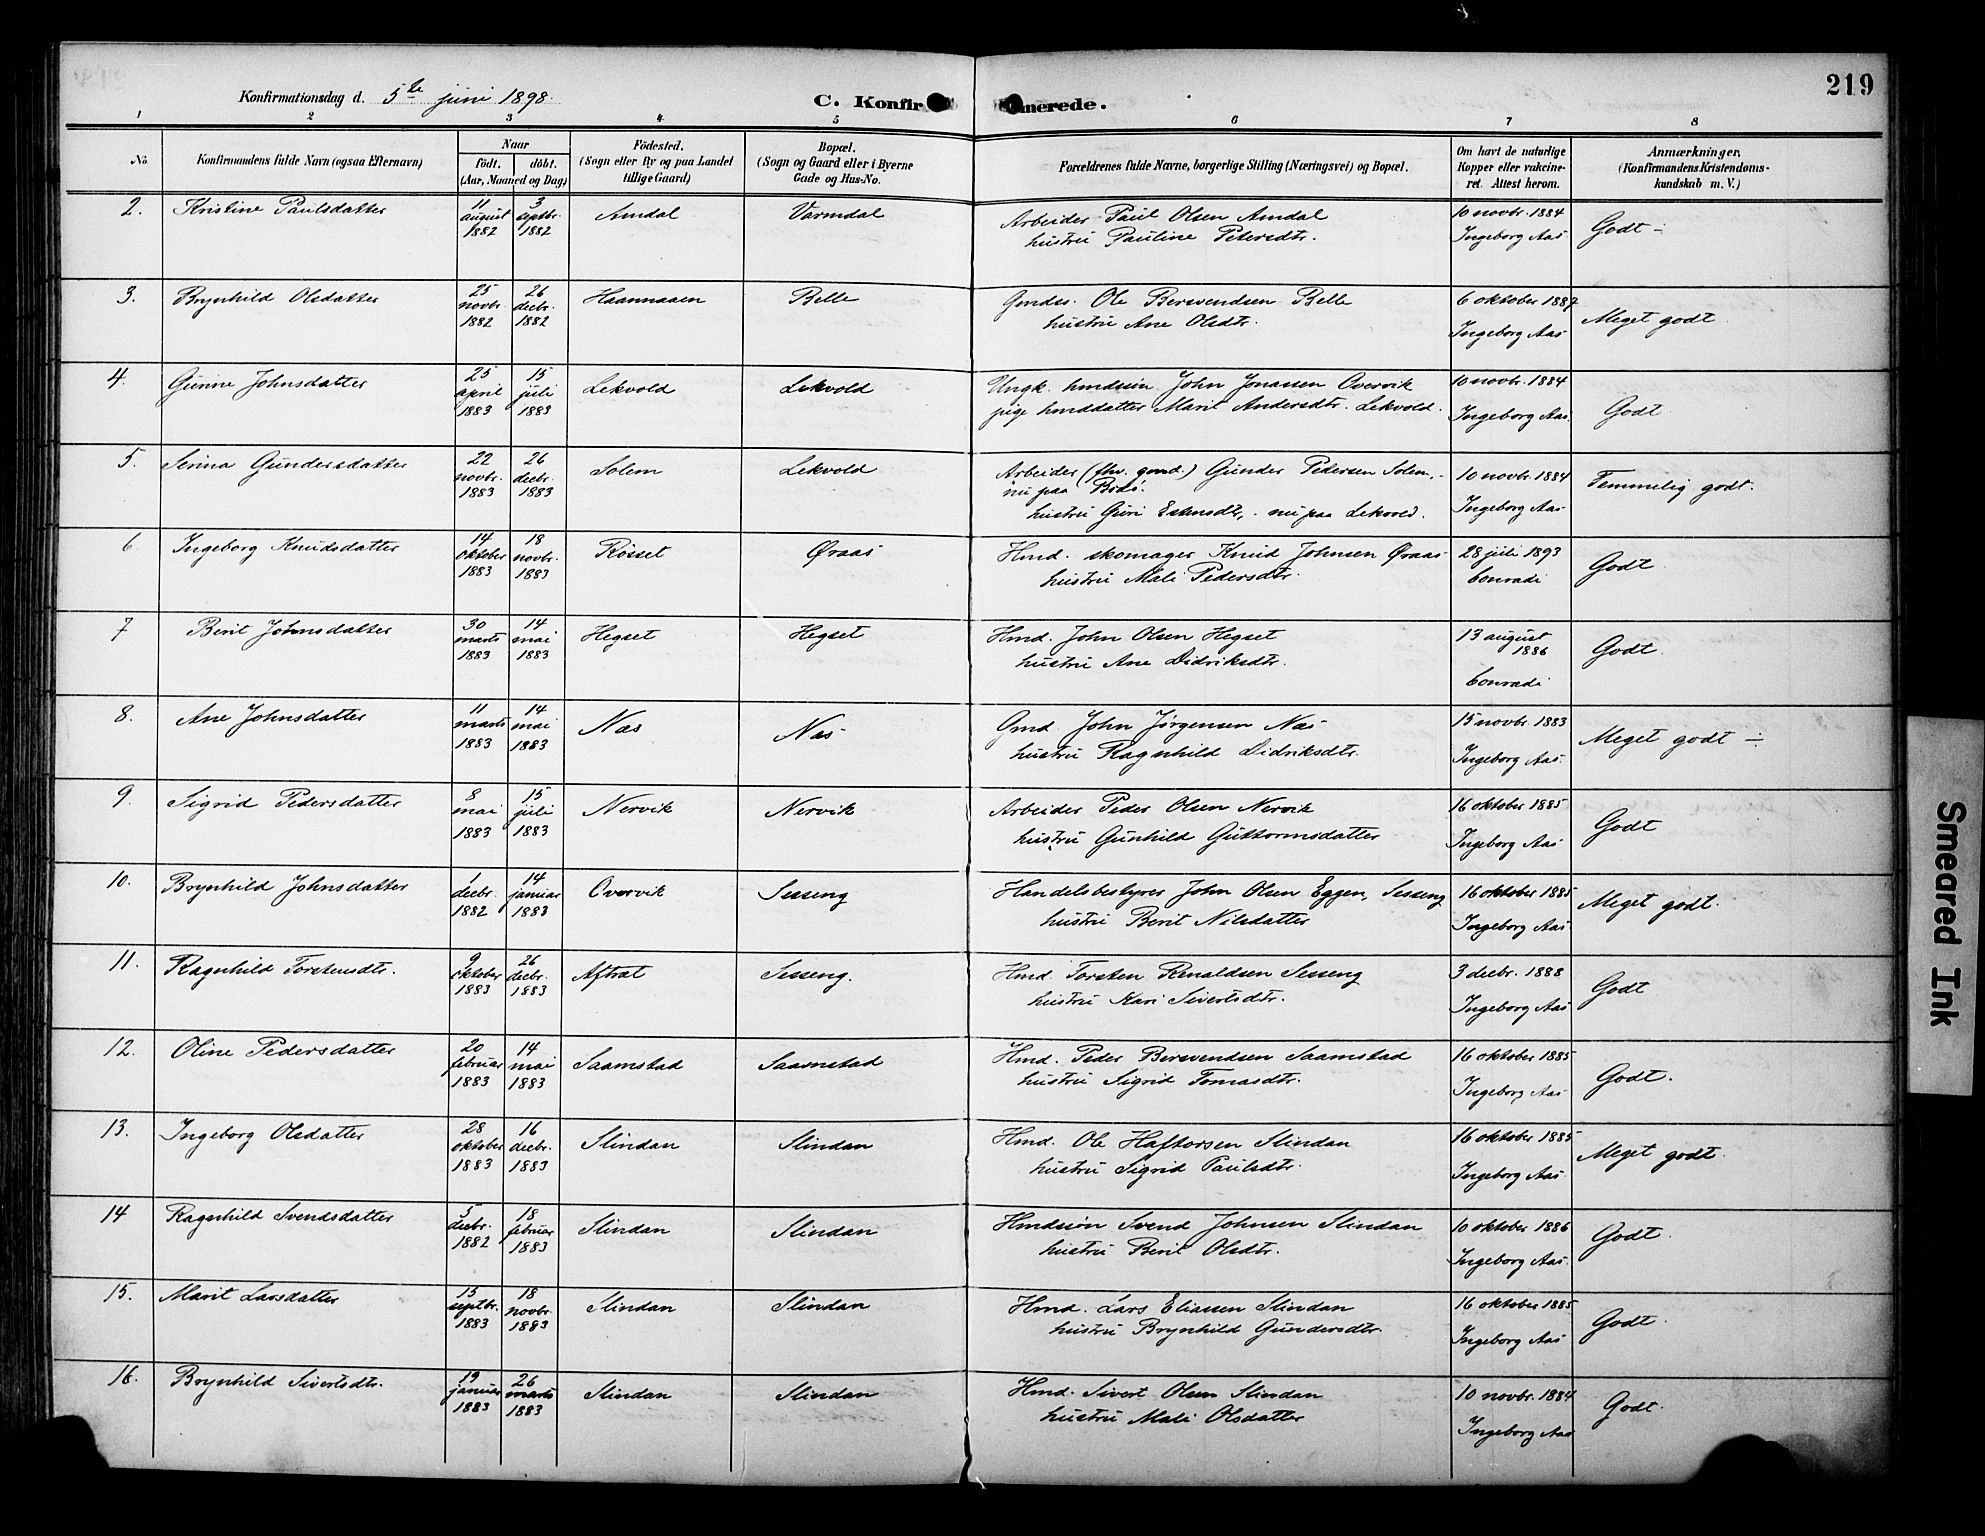 219
Konfirmationsdag d. 5te juni 1898.
C. Konfirmerede.
1 2 3 4 5 6 7 8
No. Konfirmandens fulde Navn (ogsaa Efternavn) Naar født. døbt. (Aar, Maaned og Dag) Födested. (Sogn eller By og paa Landet tillige Gaard) Bopæl. (Sogn og Gaard eller i Byerne Gade og Hus-No. Forældrenes fulde Navne, borgerlige Stilling (Næringsvei) og Bopæl. Om havt de naturlige Kopper eller vakcineret. Attest herom. Anmærkninger. (Konfirmandens Kristendomskundskab m. V.)
2. Kristine Paulsdatter 11 august 1882 3 septbr. 1882 Amdal Varmdal Arbeider Paul Olsen Amdal
hustru Pauline Petersdtr. 10 novbr. 1884 Ingeborg Aas Godt ÷
3. Brynhild Olsdatter 25 novbr. 1882 26 decbr. 1882 Haannaaen Belle Gmds. Ole Bersvendsen Belle
hustru Ane Olsdtr. 6 oktober 1887 Ingeborg Aas Meget godt.
4. Gurine Johnsdatter 25 april 1883 15 juli 1883 Lekvold Lekvold Ungk. hmdssøn John Jonassen Overvik
pige hmddatter Marit Andersdtr. Lekvold. 10 novbr. 1884 Ingeborg Aas Godt
5. Serina Gundersdatter 22 novbr. 1883 26 decbr. 1883 Solem Lekvold Arbeider (fhv. gmd.) Gunder Pedersen Solem,
nu paa
hustru Guri Estensdtr, nu paa Lekvold. 10 novbr. 1884 Ingeborg Aas Temmelig godt.
6. Ingeborg Knudsdatter 14 oktober 1883 18 novbr. 1883 Røsset Øraas Hmd. skomager Knud Johnsen Øraas
hustru Mali Pedersdtr. 28 juli 1893 Conradi Godt
7 Berit Johnsdatter 30 marts 1883 14 mai 1883 Hegset Hegset Hmd. John Olsen Hegset
hustru Ane Didriksdtr. 13 august 1886 Conradi Godt.
8. Ane Johnsdatter 11 marts 1883 14 mai 1883 Næs Næs Gmd. John Jørgensen Næs
hustru Ragnhild Didriksdtr. 15 novbr. 1883 Ingeborg Aas Meget godt ÷
9. Sigrid Pedersdatter 8 mai 1883 15 juli 1883 Nervik Nervik Arbeider Peder Olsen Nervik
hustru Gunhild Guttormsdatter 16 oktober 1885 Ingeborg Aas Godt
10. Brynhild Johnsdatter 1 decbr. 1882 14 januar 1883 Overvik Sesseng Handelsbestyrer John Olsen Eggen, Sesseng
hustru Berit Nilsdatter 16 oktober 1885 Ingeborg Aas Meget godt.
11. Ragnhild Torstensdtr. 9 oktober 1883 26 decbr. 1883 Aftrat Sesseng. Hmd. Torsten Renaldsen Sesseng
hustru Kari Sivertsdtr. 3 decbr. 1888 Ingeborg Aas Godt
12. Oline Pedersdatter 20 februar 1883 14 mai 1883 Saamstad Saamstad Hmd. Peder Bersvendsen Saamstad
hustru Sigrid Tomasdtr. 16 oktober 1885 Ingeborg Aas Godt.
13. Ingeborg Olsdatter 28 oktober 1883 16 decbr. 1883 Slindan Slindan Hmd. Ole Haftorsen Slindan
hustru Sigrid Paulsdtr. 16 oktober 1885 Ingeborg Aas Meget godt.
14 Ragnhild Svendsdatter 5 decbr. 1882 18 februar 1883 Slindan Slindan Hmdssøn Svend Johnsen Slindan
hustru Berit Olsdtr. 10 oktober 1886 Ingeborg Aas Godt.
15. Marit Larsdatter 15 septbr. 1883 18 novbr. 1883 Slindan Slindan Hmd. Lars Eliassen Slindan
hustru Brynhild Gundersdtr. 16 oktober 1885 Ingeborg Aas Godt.
16. Brynhild Sivertsdtr. 19 januar 1883 26 marts 1883 Slindan Slindan Hmd. Sivert Olsen Slindan
hustru Mali Olsdatter 10 novbr. 1884 Ingeborg Aas Godt.
Smeared Ink